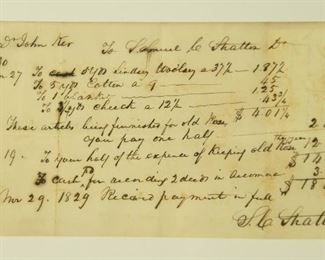 Dr John Ker To Samuel C Shatton Dr
27 To 5 yds Lindsey Woolsey a 37½ — 187½
To 5 yds Cotton a 9 — 45
To 1 blanket 1.25
To yds check a 12½ — 43¾
$4.01¼
These articles being furnished for old Rose
you pay one half 2
19 To your half of the expence of keeping old Rose 12
$14
To cash pd for recording 2 deeds in Accomac 3
$18
Nov 29. 1829 Recived payment in full
S. C Shatt